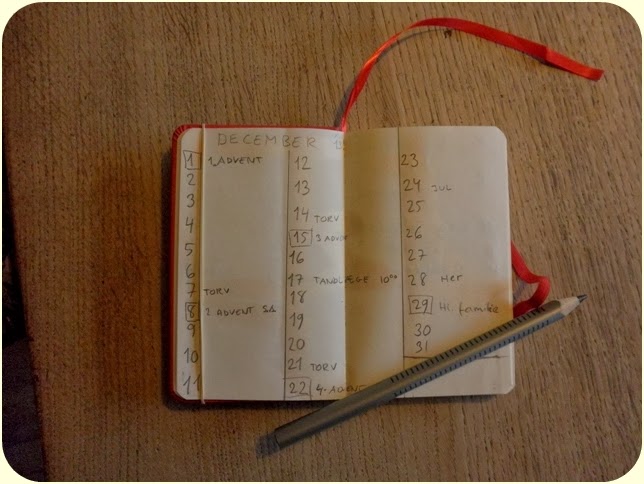 DECEMBER
1 1. ADVENT
2
3
4
5
6
7 TORV
8 2 ADVENT
9
10
11
12
13
14 TORV
15 3 ADVENT
16
17 TANDLÆGE 10
18
19
20
21 TORV
22 4. ADVENT
23
24 JUL
25
26
27
28 Her
29 Hl. familie
30
31